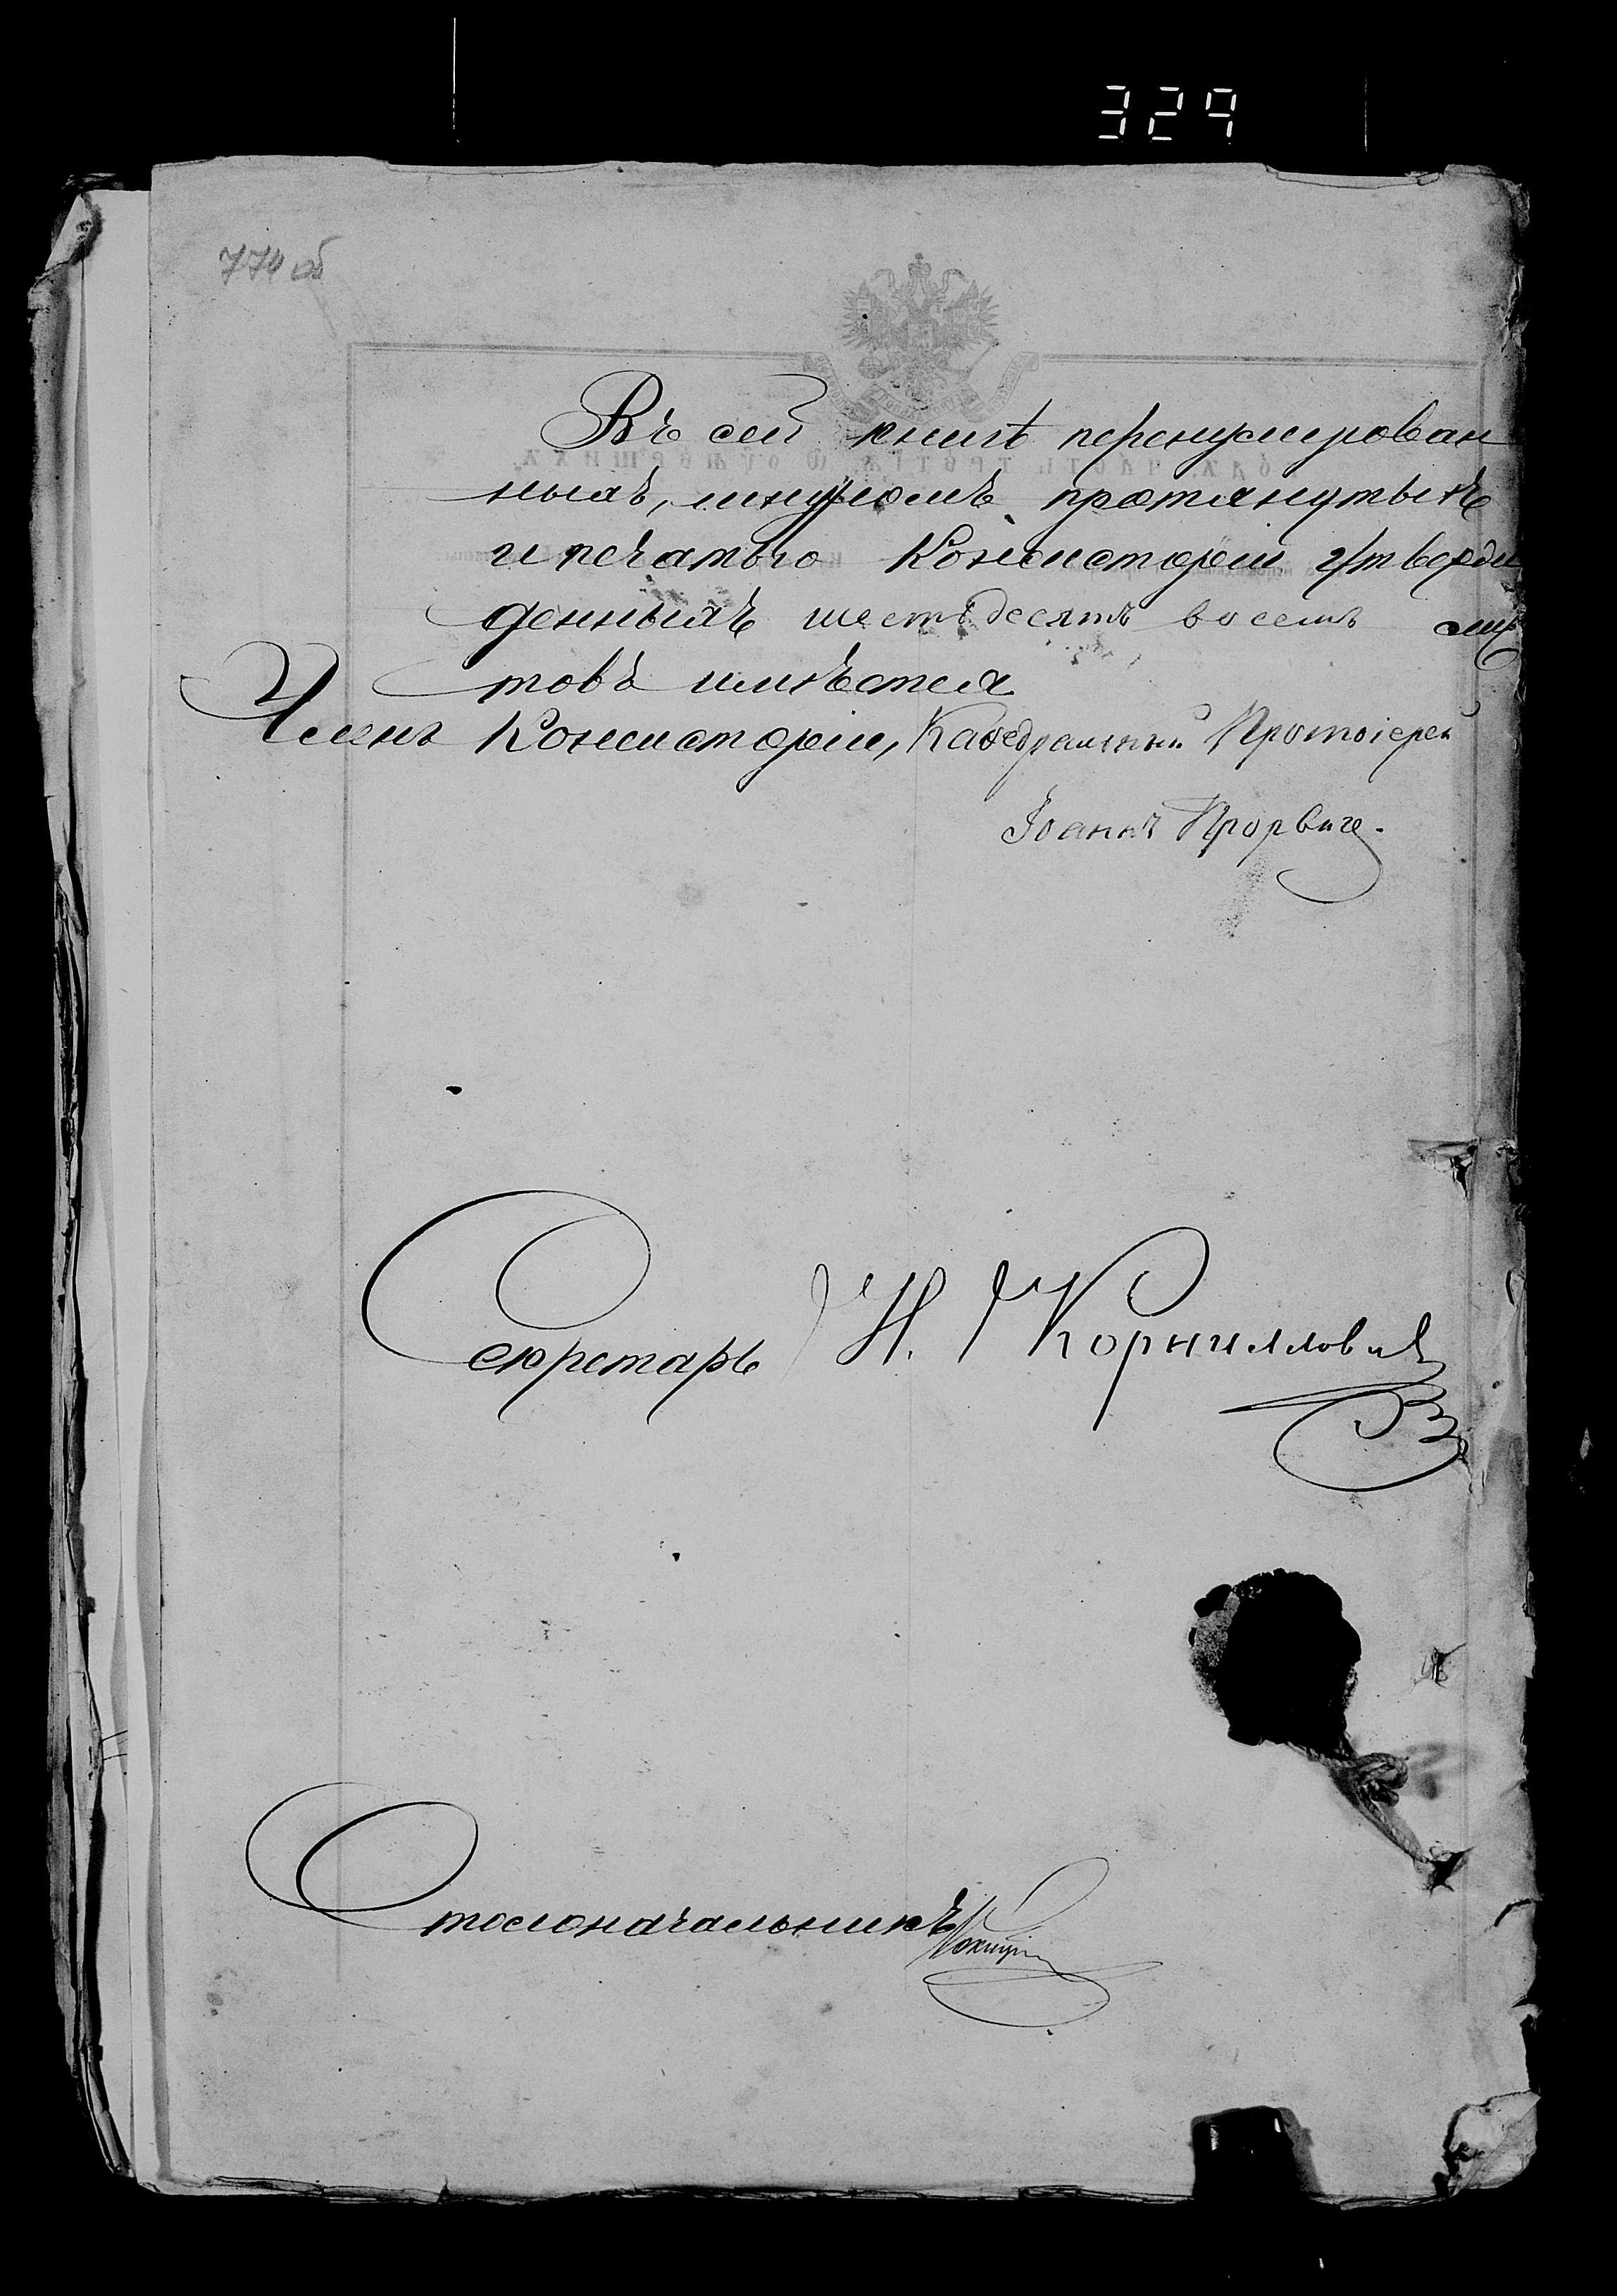 329
774 об
Въ сей книгѣ перенумерован
ныхъ, шнуромъ протянутыхъ
и печатью Консисторіи утверж
денныхъ шестьдесятъ восемь лис
товъ имѣется
Членъ Консисторіи, Каѳедральный Протоіерей
Іоаннъ
Секретарь Н. Корниллович
Столоначальникъ